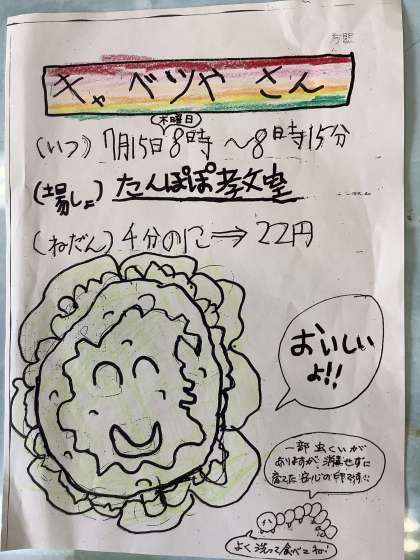 キャベツやさん
(いつ) 7月15日 8時 〜8時15分
木曜日
(場しょ) たんぽぽ教室
(ねだん) 4分の1こ⇒22円
おいしい
よ!!
一部 虫くいが
ありますが、消毒せずに
育てた 安心の印です!!
よく洗って食べてね!